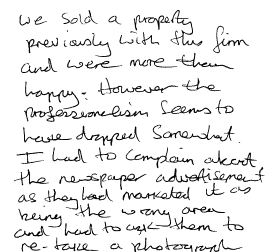 we sold a property
previously with this firm
and were more than
happy. However the
professionalism seems to
have dropped somewhat.
I had to complain about
the newspaper advertisement
as they had marketed it as
being the wrong area
and had to ask them to
re-take a photograph